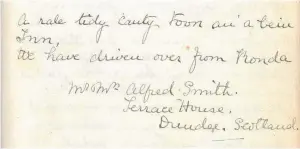 A rale tidy Canty Toon an' a bein
Inn,
We have driven over from Ronda
Mr & Mrs Alfred Smith.
Terrace House.
Dundee. Scotland.